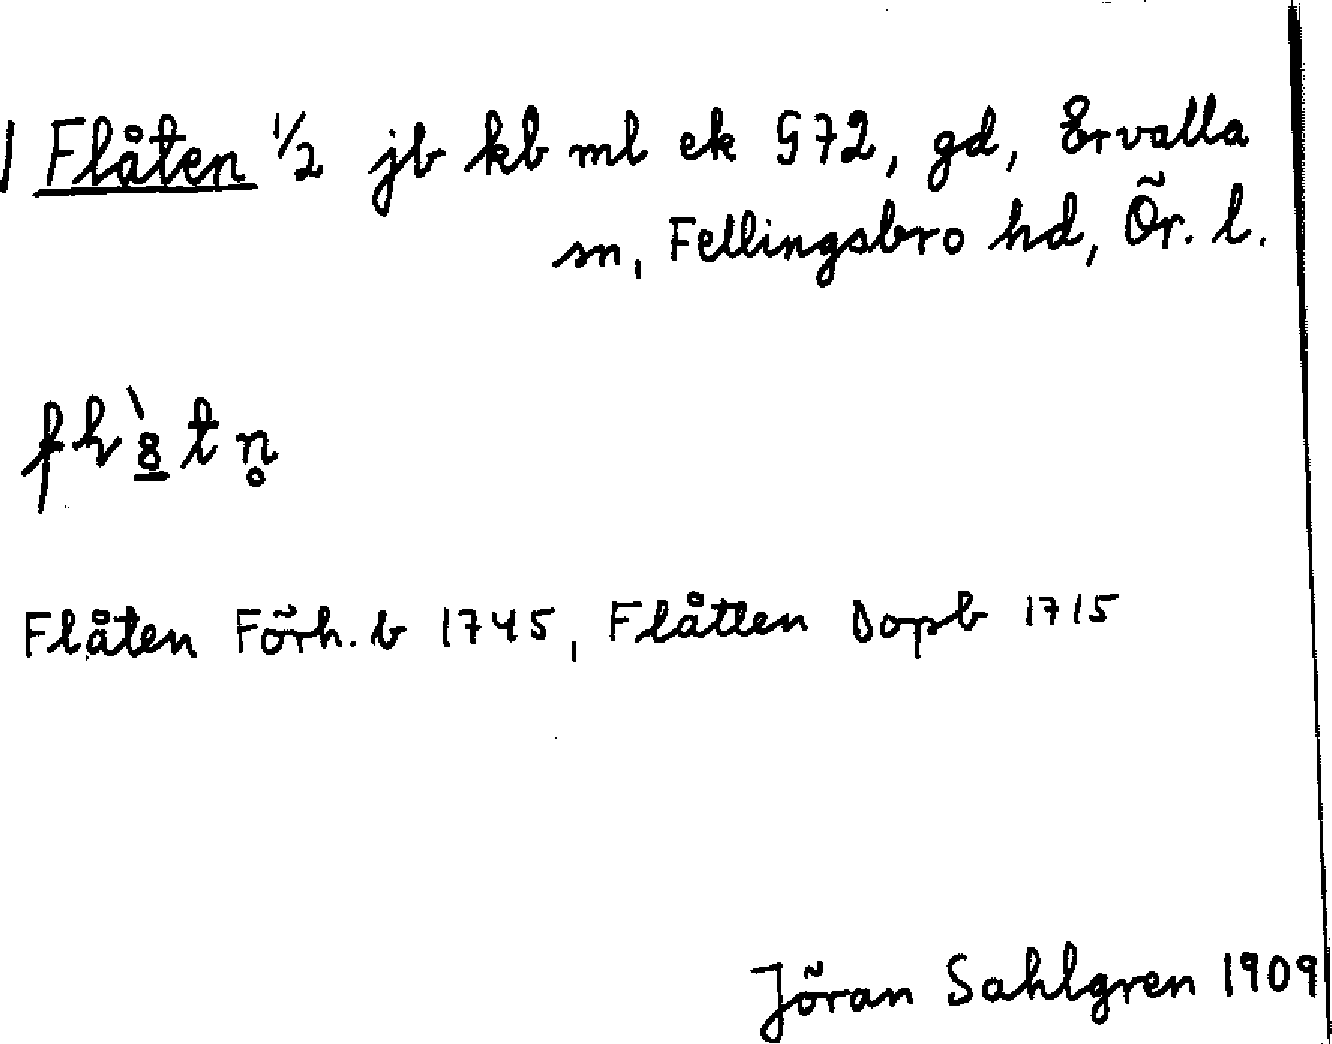 Flåten 1/2 jb kb ml ek G72, gd, Ervalla
sn, Fellingsbro hd, Ör. l.
Flåten Förh. b 1745, Flåtten Dopb 1715
Jöran Sahlgren 1909